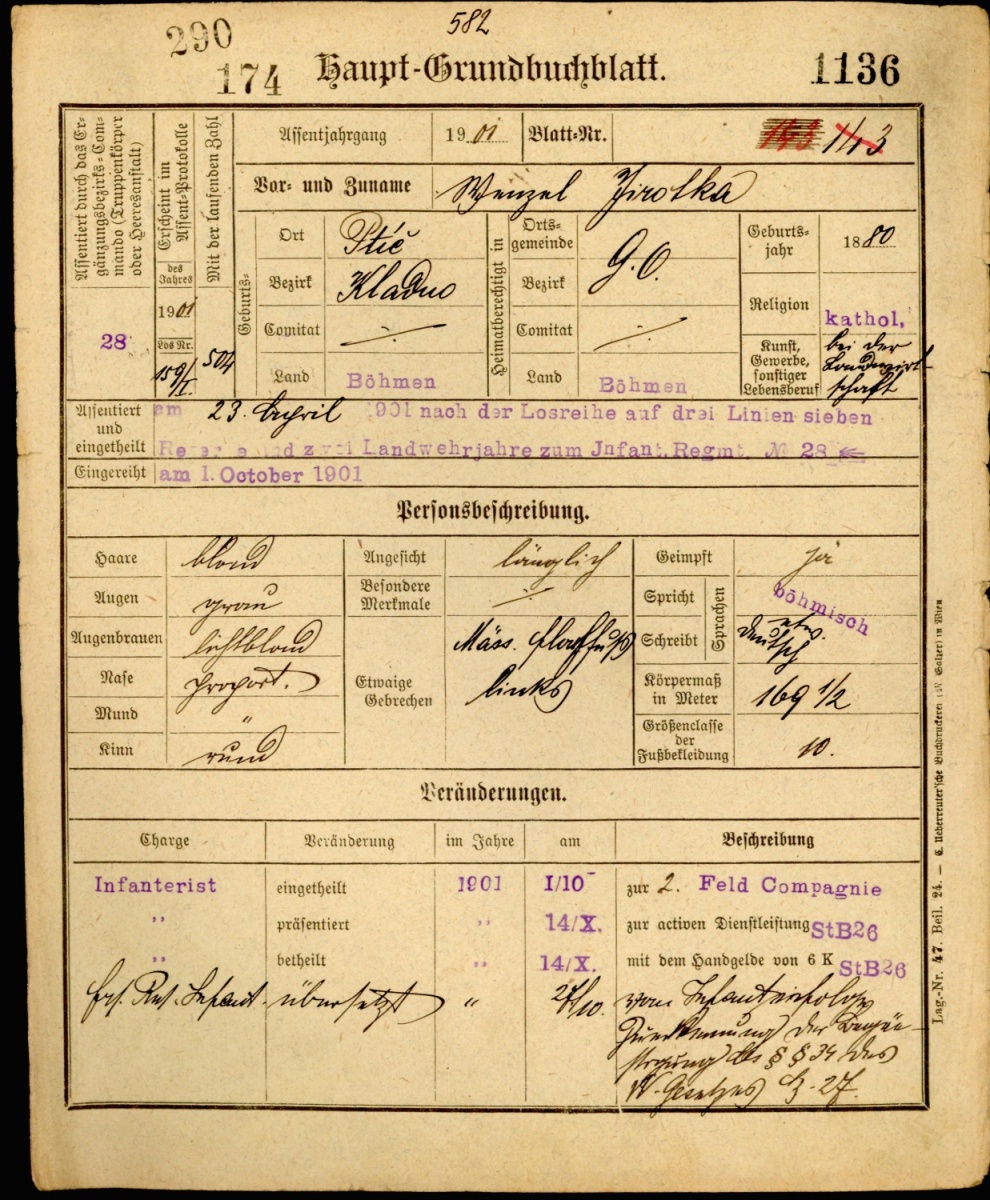 290
582
174
Haupt-Grundbuchblatt.
1136
Assentiert durch das Er-
gänzungsbezirks-Com-
mando (Truppenkörper
oder Heeresanstalt)
28
Erscheint im
Assent-Protokolle
des
Jahres
1901
Los Nr.
159/I.
Mit der laufenden Zahl
504
Assentjahrgang
1901
Blatt-Nr.
143
1143
Vor- und Zuname
Wenzel Jirotka
Geburts-
Ort
Ptič
Bezirk
Kladno
Comitat
Land
Böhmen
Heimatberechtigt in
Orts-
gemeinde
G. O.
Bezirk
Comitat
Land
Böhmen
Geburts-
jahr
1880
Religion
kathol.
Kunst,
Gewerbe,
sonstiger
Lebensberuf
bei der
Landwirt-
schaft
Assentiert
und
eingetheilt
am 23. April 1901 nach der Losreihe auf drei Linien sieben
Reserve und zwei Landwehrjahre zum Jnfant. Regmt. № 28
Eingereiht
am 1. October 1901
Personsbeschreibung.
Haare
blond
Augen
grau
Augenbrauen
lichtblond
Nase
proport.
Mund
"
Kinn
rund
Angesicht
länglich
Besondere
Merkmale
Etwaige
Gebrechen
Mäss. Plattfuß
links
Geimpft
ja
Spricht
Schreibt
Sprachen
böhmisch
etw.
deutsch
Körpermaß
in Meter
169 1/2
Größenclasse
der
Fußbekleidung
10.
Veränderungen.
Charge
Veränderung
im Jahre
am
Beschreibung
Infanterist
eingetheilt
1901
1/10
zur 2. Feld Compagnie
"
präsentiert
"
14/X.
zur activen Dienstleistung StB26
"
betheilt
"
14/X.
mit dem Handgelde von 6 K StB26
Ers. Res. Infant.
übersetzt
"
27/10.
vom Infant. infolge
Zuerkennung der Begün-
stigung des § 34 des
W-Gesetzes
Lag.-Nr. 47. Beil. 24. — C. Ueberreuter'sche Buchdruckerei (M. Salzer) in Wien